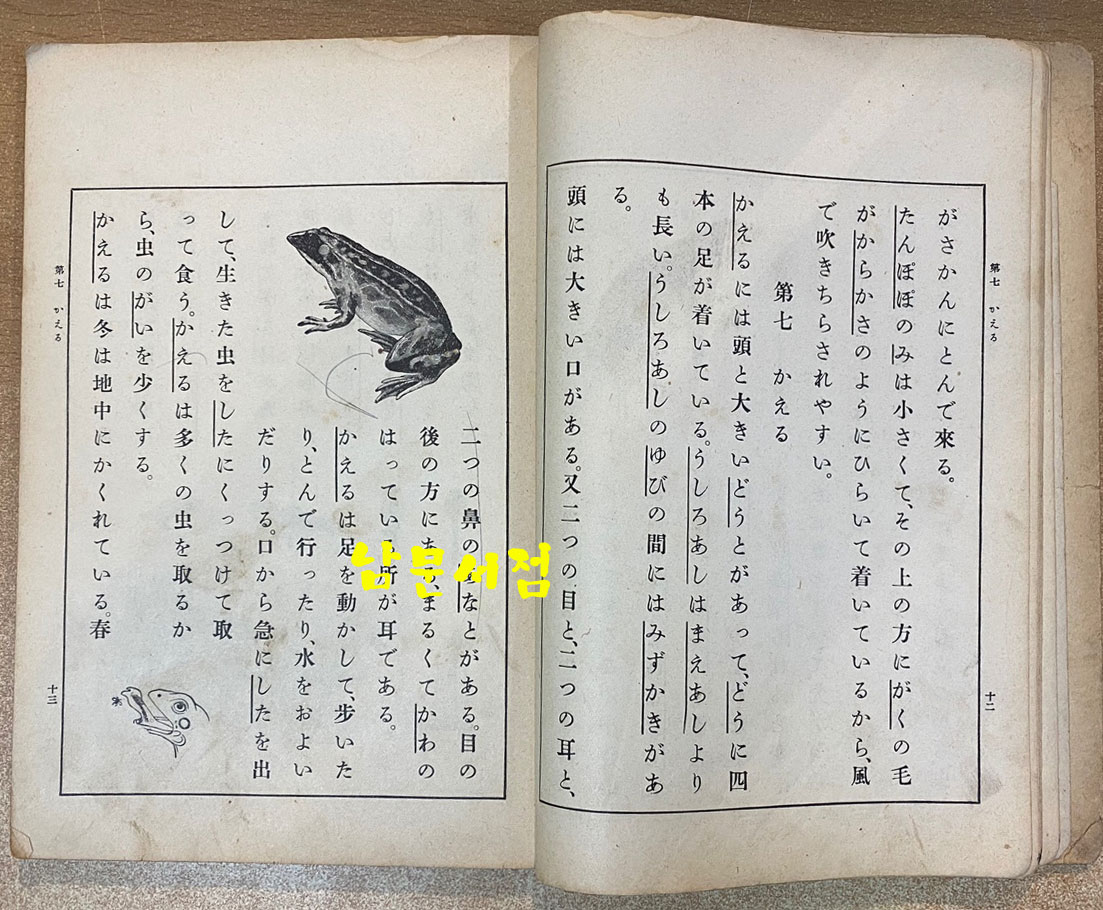 第七 かえる
十二
がさかんにとんで來る。
たんぽぽのみは小さくて、その上の方にがくの毛
がからかさのようにひらいて着いているから、風
で吹きちらされやすい。
第七 かえる
かえるには頭と大きいどうとがあって、どうに四
本の足が着いている。うしろあしはまえあしより
も長い。うしろあしのゆびの間にはみずかきがあ
る。
頭には大きい口がある。又二つの目と、二つの耳と、
二つの鼻の なとがある。目の
後の方にあ まるくてかわの
はっている所が耳である。
かえるは足を動かして、歩いた
り、とんで行ったり、水をおよい
だりする。口から急にしたを出
して、生きた虫をしたにくっつけて取
って食う。かえるは多くの虫を取るか
ら、虫のがいを少くする。
かえるは冬は地中にかくれている。春
第七 かえる
十三
남문서점